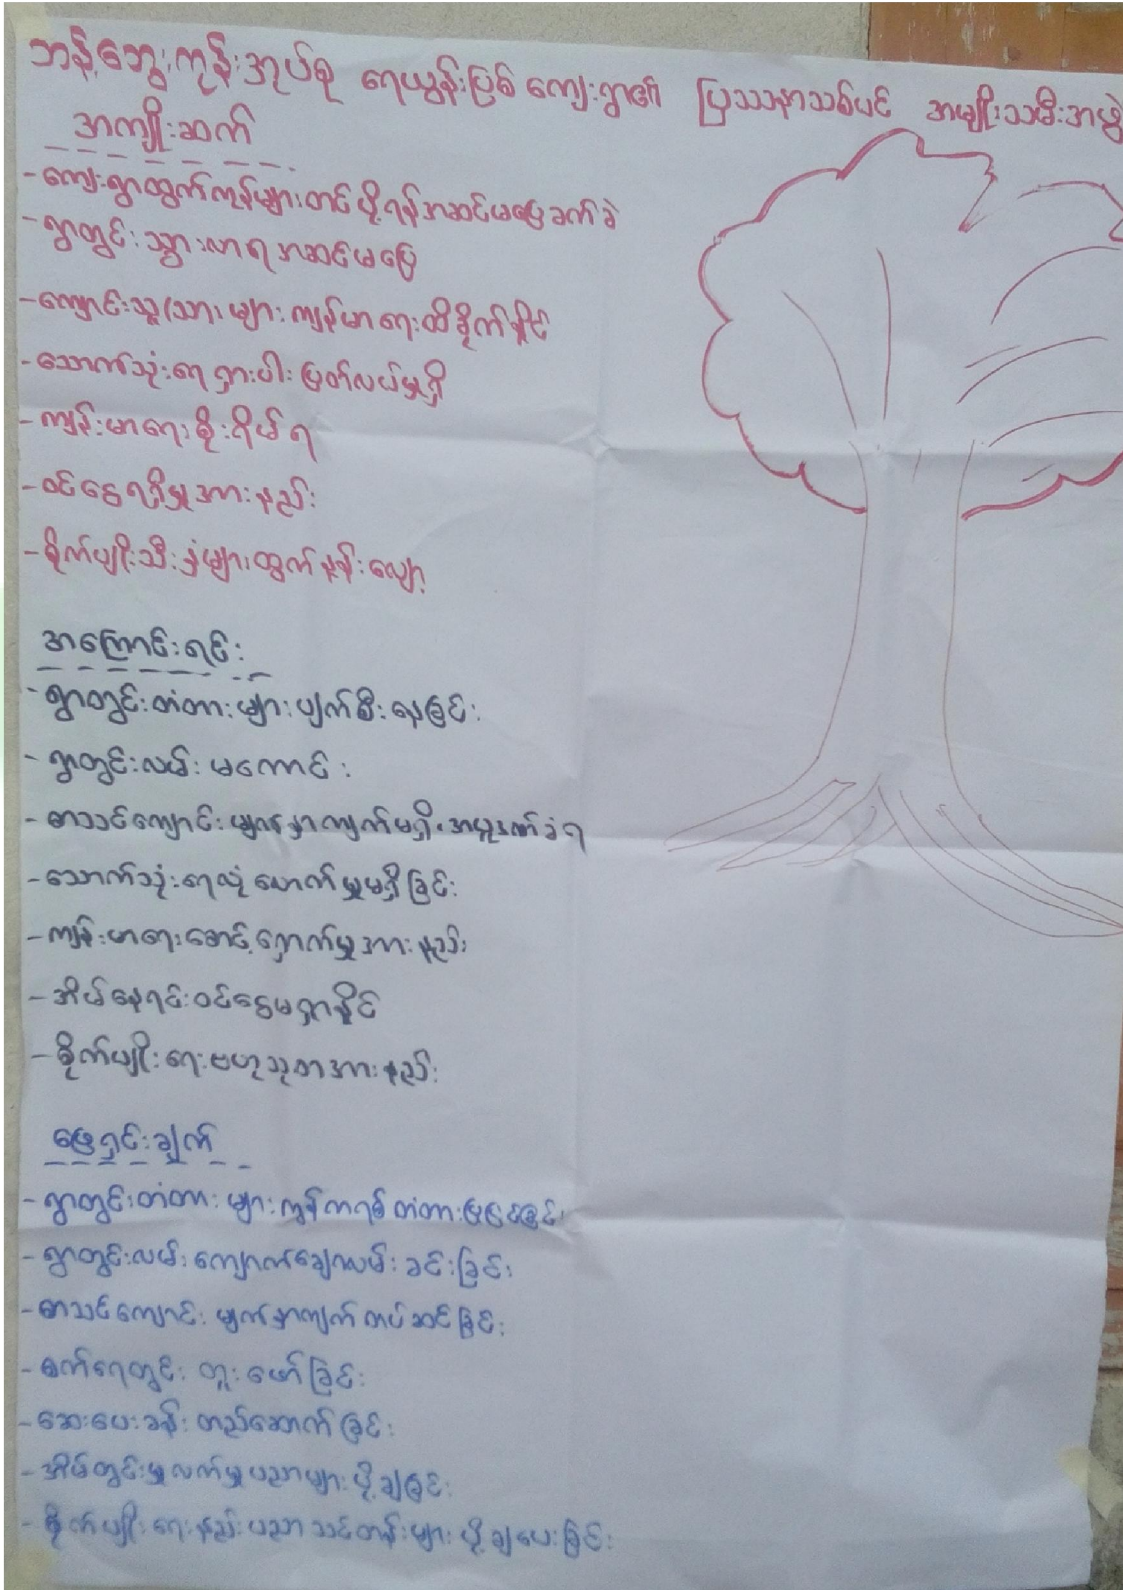 ဘန့်ဘွေးကုန်းအုပ်စု ရေယွန်းမြစ် ကျေးရွာ၏ ပြဿနာသစ်ပင် အမျိုးသမီးအဖွဲ့
အကျိုးဆက်
- ကျေးရွာထွက်ကုန်များတင်ပို့ရန်အဆင်မပြေခက်ခဲ
- ရွာတွင်းသွားလာရအဆင်မပြေ
- ကျောင်းသူ/သားများကျန်မာရေးထိခိုက်နိုင်
- သောက်သုံးရေရှားပါးပြတ်လပ်မှုရှိ
- ကျန်းမာရေးစိုးရိမ်ရ
- ဝင်ငွေရရှိမှုအားနည်း
- စိုက်ပျိုးသီးနှံများထွက်နှုန်းလျော့
အကြောင်းရင်း
- ရွာတွင်းတံတားများပျက်စီးနေခြင်း
- ရွာတွင်းလမ်းမကောင်း
- စာသင်ကျောင်းမျက်နှာကျက်မရှိ၊အပူဒဏ်ခံရ
- သောက်သုံးရေလုံလောက်မှုမရှိခြင်း
- ကျန်းမာရေးစောင့်ရှောက်မှုအားနည်း
- အိမ်နေရင်းဝင်ငွေမရှာနိုင်
- စိုက်ပျိုးရေးဗဟုသုတအားနည်း
ဖြေရှင်းချက်
- ရွာတွင်းတံတားများကွန်ကရစ်တံတားပြုပြင်ခြင်း
- ရွာတွင်းလမ်းကျောက်ချောလမ်းခင်းခြင်း
- စာသင်ကျောင်းမျက်နှာကျက်တပ်ဆင်ခြင်း
- စက်ရေတွင်းတူးဖော်ခြင်း
- ဆေးပေးခန်းတည်ဆောက်ခြင်း
- အိမ်တွင်းမှုလက်မှုပညာများပို့ချခြင်း
- စိုက်ပျိုးရေးနည်းပညာသင်တန်းများပို့ချပေးခြင်း